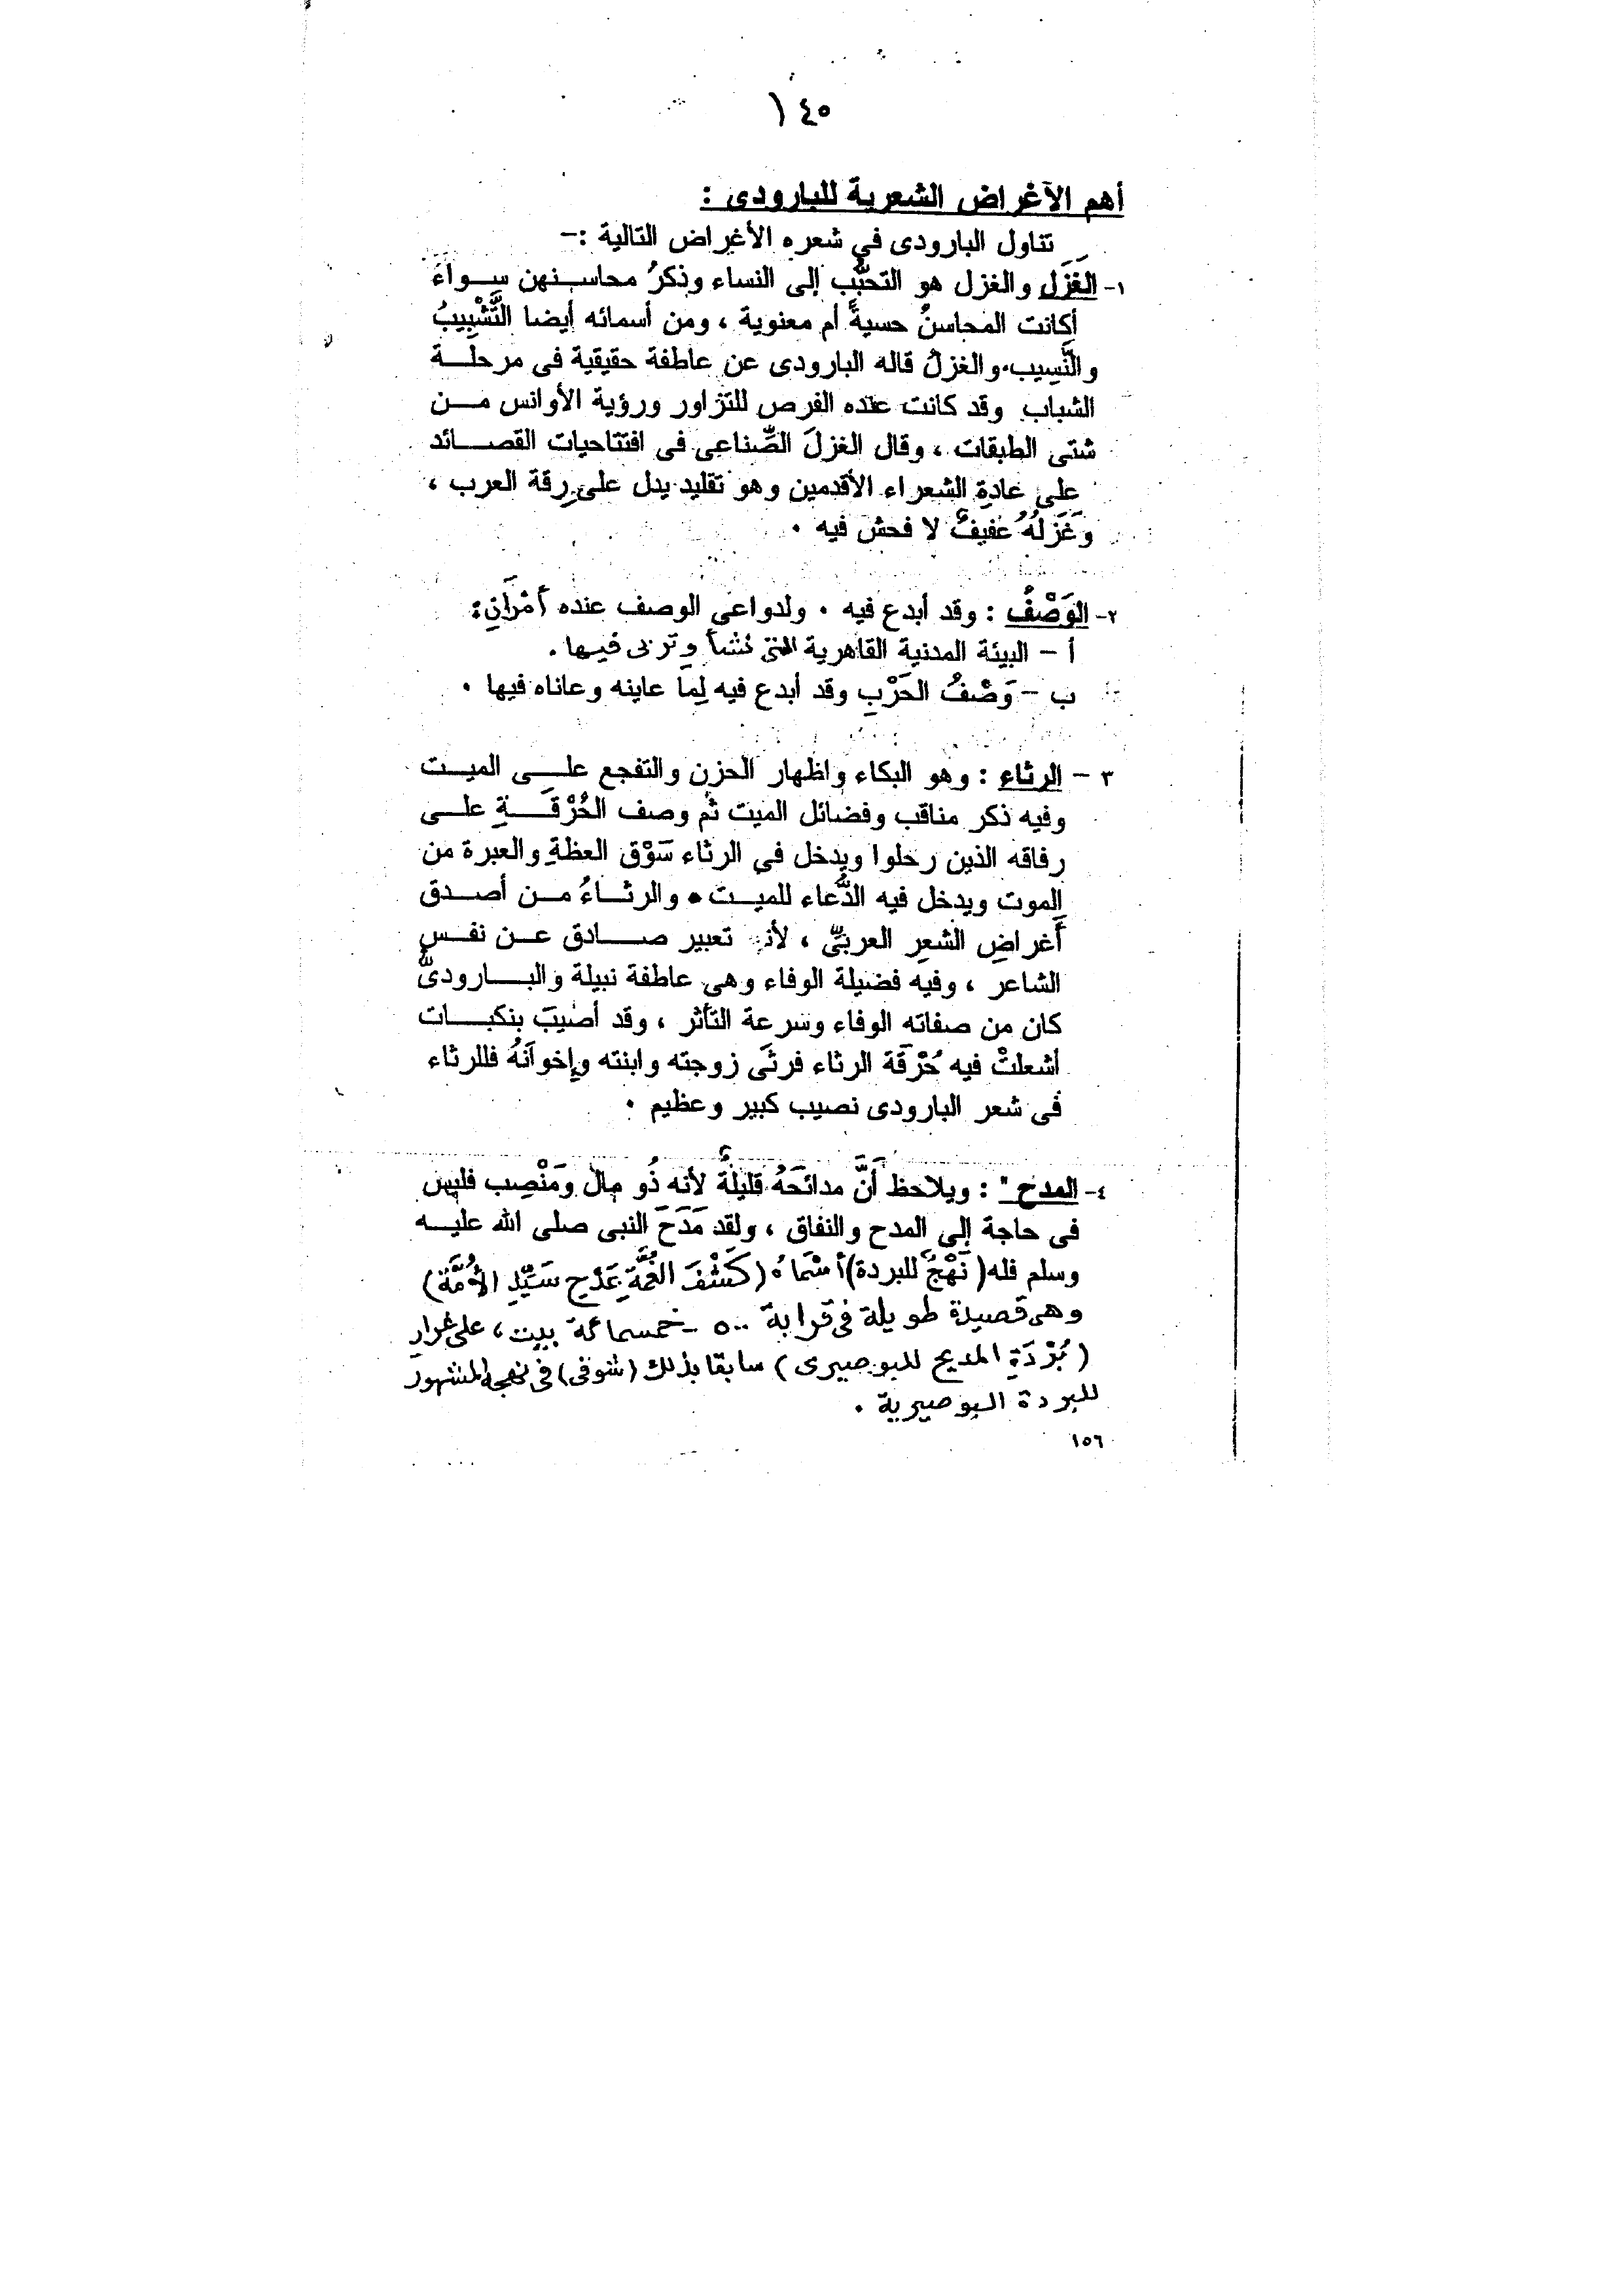 ١٤٥
أهم الآغراض الشعرية للبارودى :
تناول البارودى في شعره الأغراض التالية :-
١- الغَزَل والغزل هو التحبُّب إلى النساء وذكرُ محاسنهن سواءَ
أكانت المحاسنُ حسيةً أم معنوية ، ومن أسمائه أيضا التَّشْبِيبُ
والنَّسِيب. والغزلُ قاله البارودى عن عاطفة حقيقية فى مرحلة
الشباب وقد كانت عنده الفرص للتزاور ورؤية الأوانس من
شتى الطبقات ، وقال الغزلَ الصِّناعى فى افتتاحيات القصائد
على عادةِ الشعراء الأقدمين وهو تقليد يدل على رِقة العرب ،
وَغَزَلُهُ عفيفٌ لا فحش فيه .
٢- الوَصْفُ : وقد أبدع فيه . ولدواعى الوصف عنده أمْرَانِ :
أ - البيئة المدنية القاهرية التى نشأ وتربى فيها .
ب - وَصْفُ الحَرْبِ وقد أبدع فيه لِمَا عاينه وعاناه فيها .
٣ - الرثاء : وهو البكاء واظهار الحزن والتفجع على الميت
وفيه ذكر مناقب وفضائل الميت ثم وصف الحُرْقَةِ على
رفاقه الذين رحلوا ويدخل في الرثاء سَوْق العظةِ والعبرة من
الموت ويدخل فيه الدُّعاء للميت . والرثاءُ من أصدق
أَغراضِ الشعرِ العربىِّ ، لأنه تعبير صادق عن نفس
الشاعر ، وفيه فضيلة الوفاء وهى عاطفة نبيلة والبارودىُّ
كان من صفاته الوفاء وسرعة التأثر ، وقد أصيبَ بنكبات
أشعلتْ فيه حُرْقَة الرثاء فرثَى زوجته وابنته وإخوانَهُ فللرثاء
فى شعر البارودى نصيب كبير وعظيم .
٤- المدح " : ويلاحظ أنَّ مدائحَهُ قليلةٌ لأنه ذُو مال ومَنْصِب فليس
فى حاجة إلى المدح والنفاق ، ولقد مَدَحَ النبى صلى الله عليه
وسلم فله ( نَهْجٌ للبردة) أسْمَاهُ (كَشْفَ الغُمَّةِ بمَدْحِ سَيِّدِ الأُمَّة)
وهى قصيدة طويلة فى قرابة ٥٠٠ - خمسمائة بيت ، على غرارِ
(بُرْدَةِ المديح للبوصيرى) سابقا بذلك (شوقى) فى نهجه المشهور
للبردة البوصيرية .
١٥٦